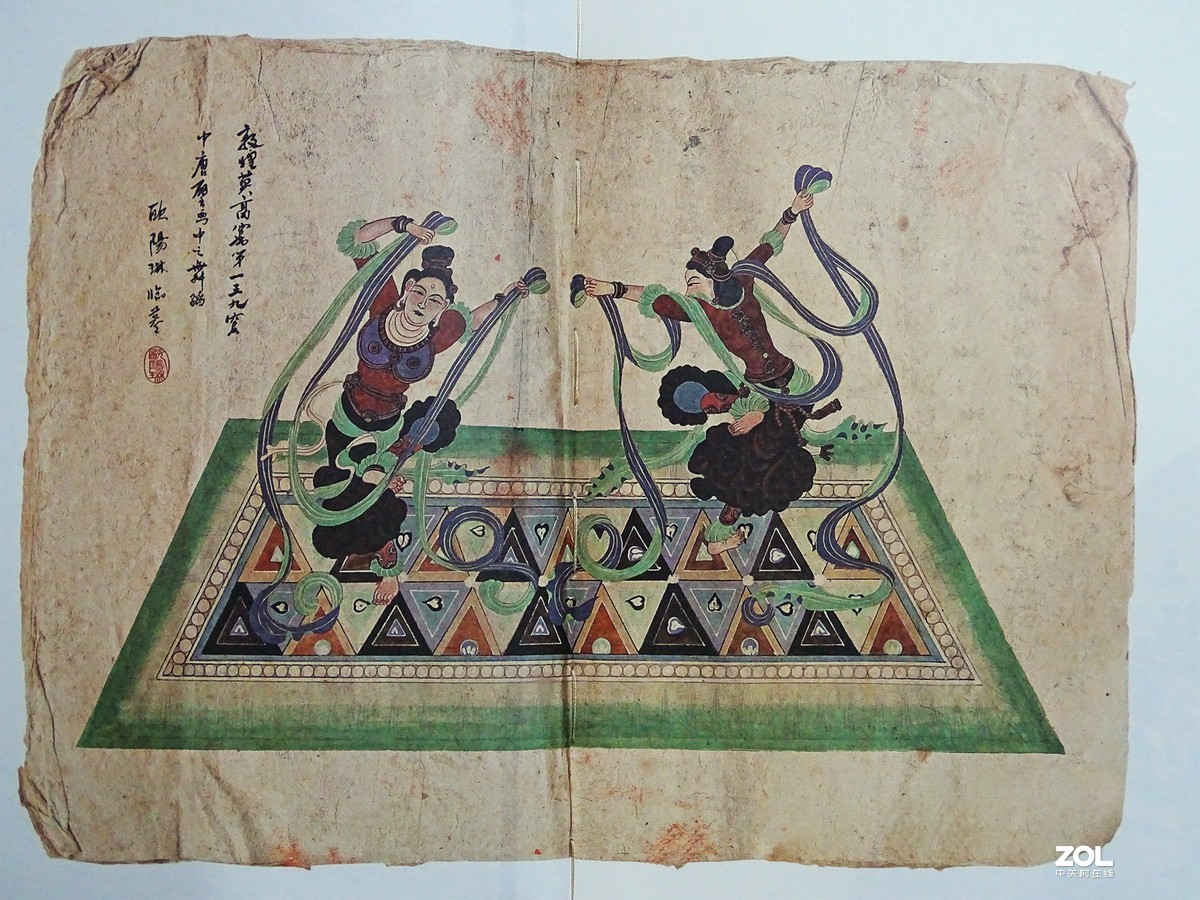 敦煌莫高窟第一五九窟
中唐壁画中之舞蹈
欧陽琳临摹
ZOL
中关村在线